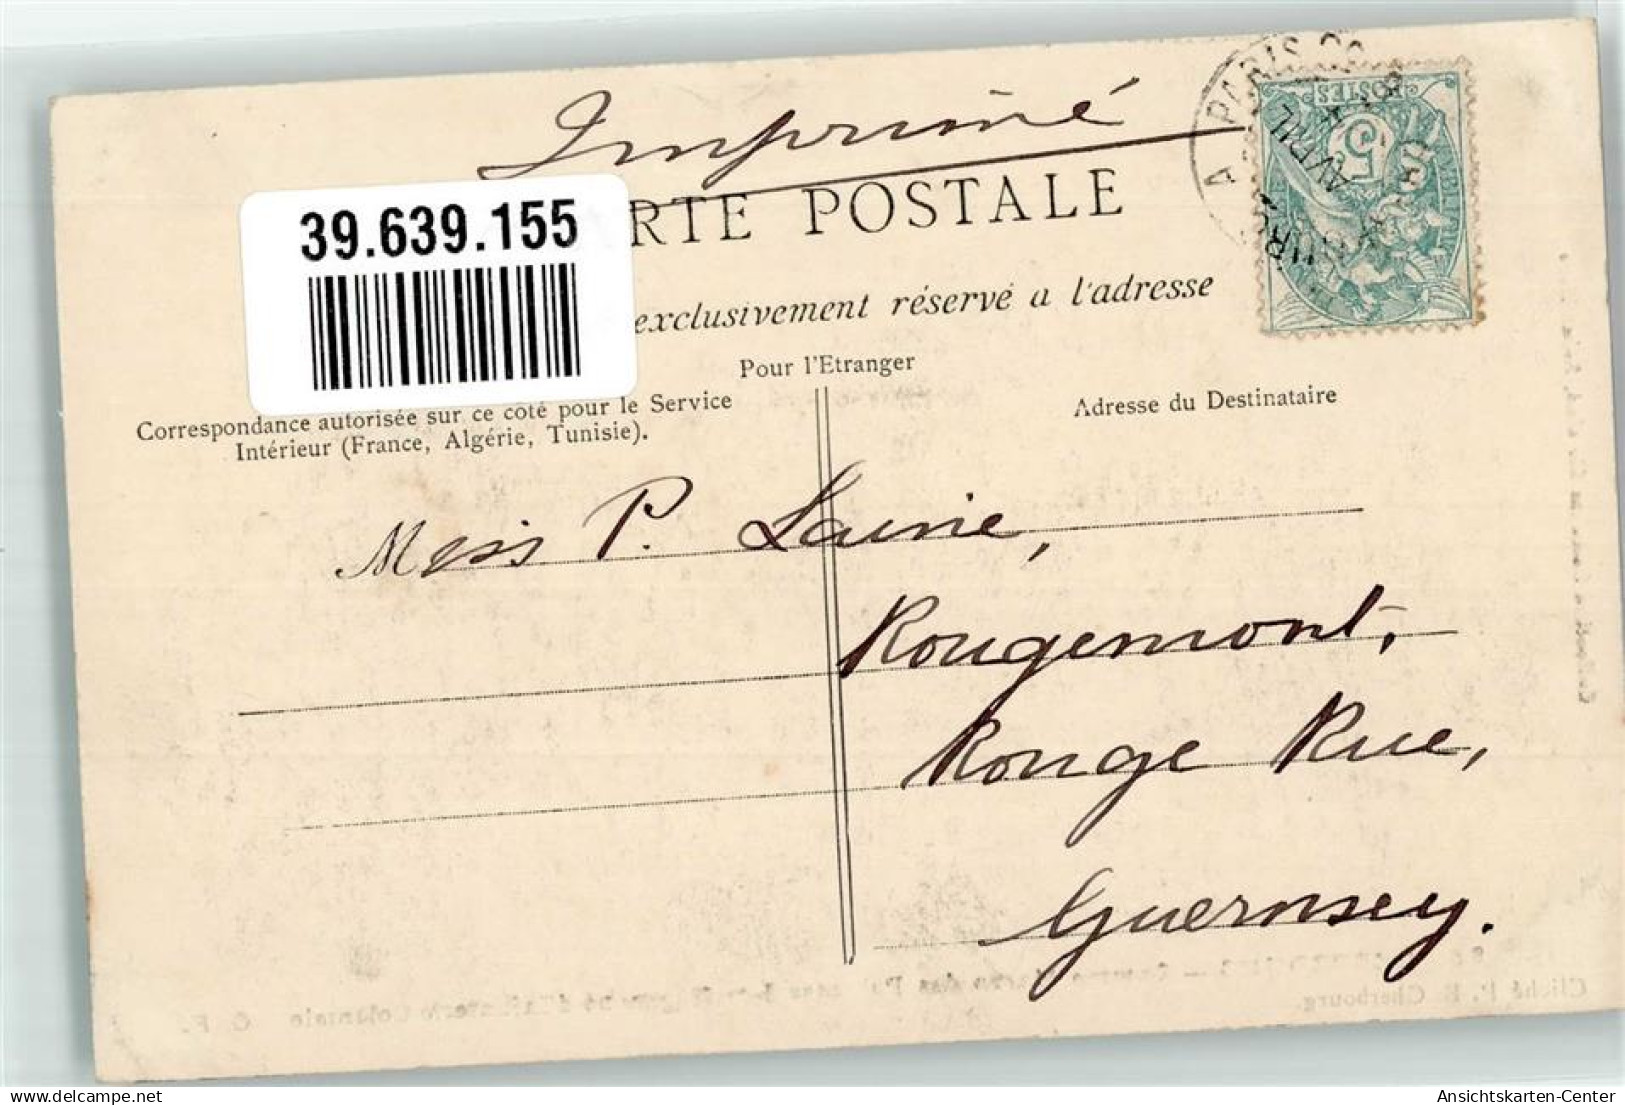 Imprimé
39.639.155
RTE POSTALE
exclusivement réservé a l'adresse
Pour l'Etranger
Correspondance autorisée sur ce côté pour le Service
Intérieur (France, Algérie, Tunisie).
Adresse du Destinataire
POSTES
5
A PARIS
AVRIL
Miss P. Laurie,
Rougemont,
Rouge Rue,
Guernsey.
Cliché P. B. Cherbourg.
Ansichtskarten-Center